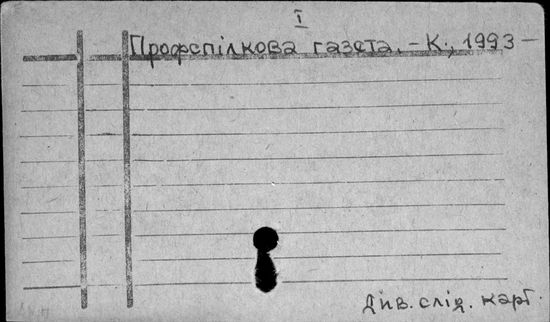 I
Профспілкова газета. – К., 1993 –
Див. слід. карт.